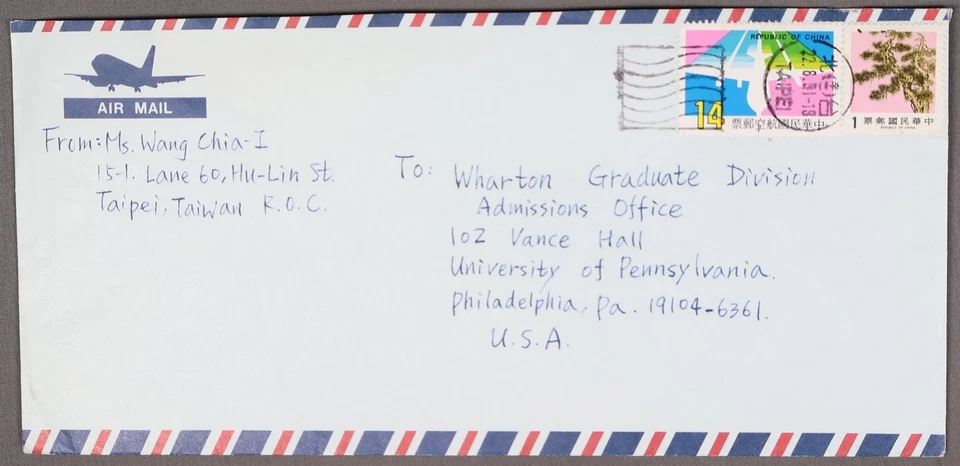 AIR MAIL
From: Ms. Wang Chia-I
15-1. Lane 60, Hu-Lin St.
Taipei, Taiwan R.O.C.
To: Wharton Graduate Division
Admissions Office
102 Vance Hall
University of Pennsylvania.
Philadelphia, Pa. 19104-6361.
U.S.A.
REPUBLIC OF CHINA
14
票郵空航國民華中
TAIPEI
1
票郵國民華中
REPUBLIC OF CHINA